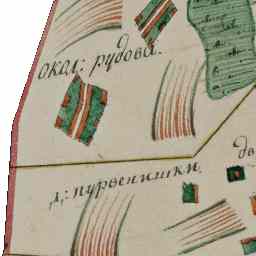 окол: рудова.
д: пурвенишки.
дв